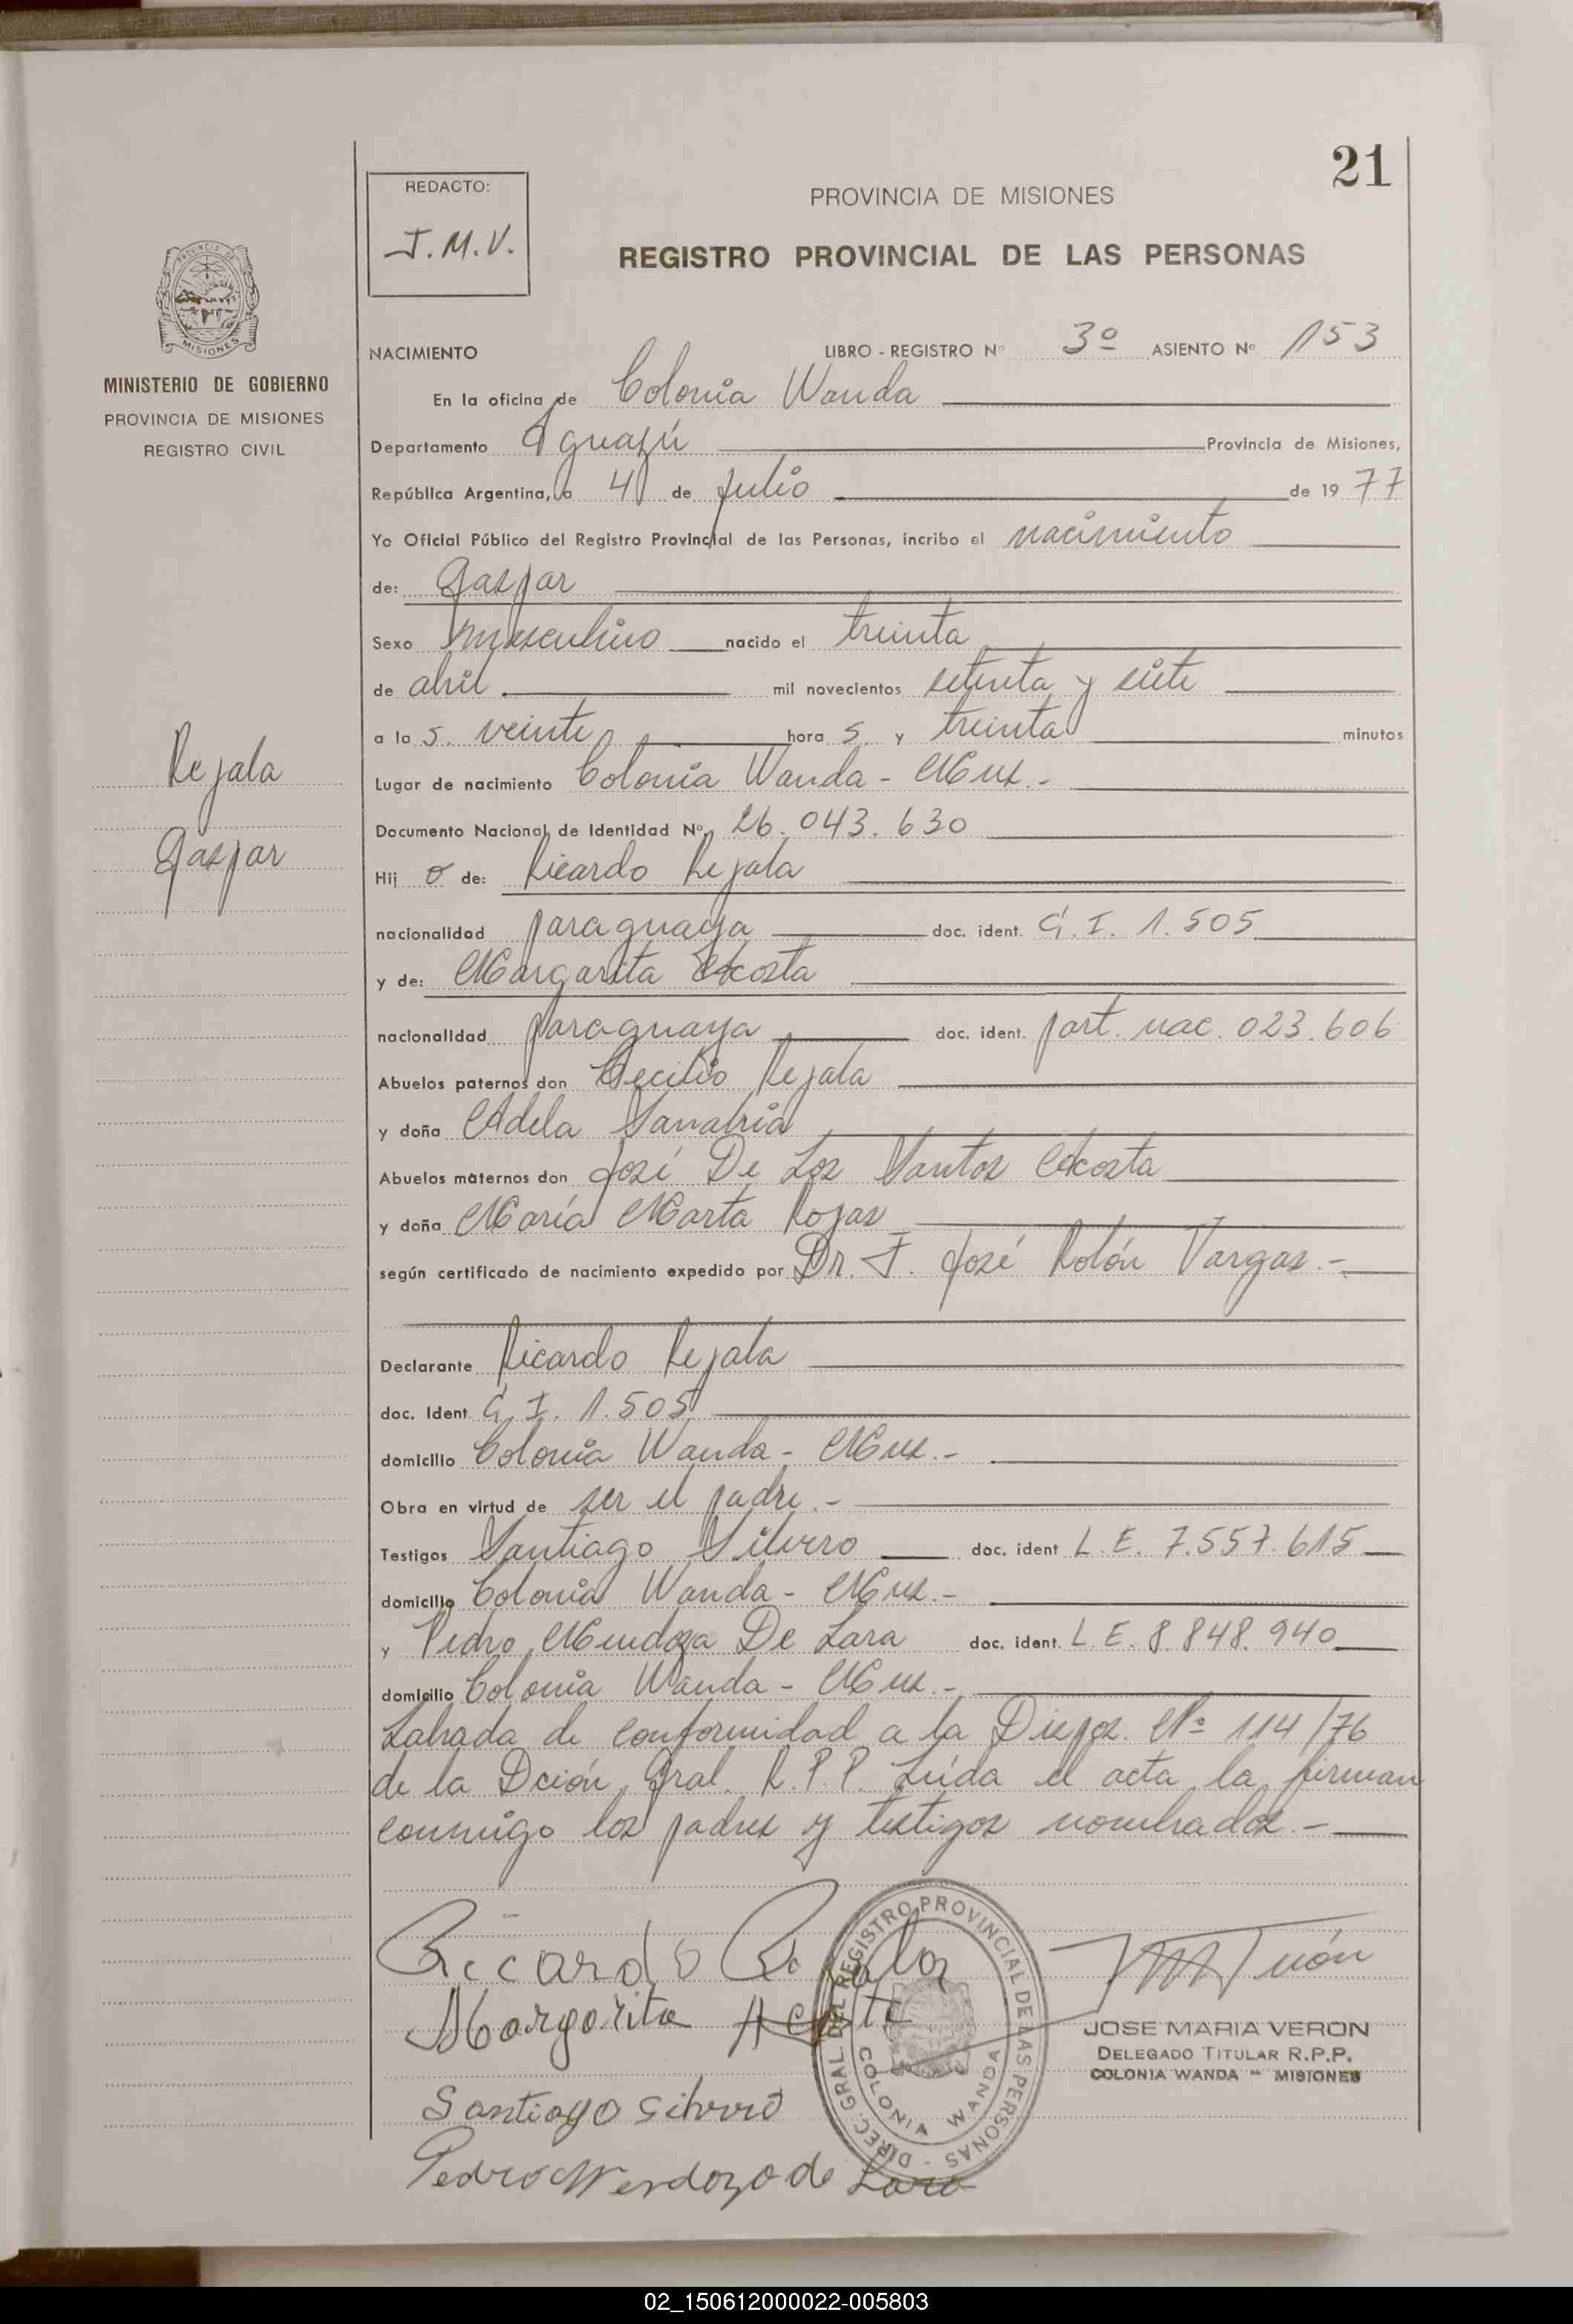 21
REDACTO:
J.M.V.
PROVINCIA DE MISIONES
REGISTRO PROVINCIAL DE LAS PERSONAS
PROVINCIA DE
MISIONES
MINISTERIO DE GOBIERNO
PROVINCIA DE MISIONES
REGISTRO CIVIL
NACIMIENTO LIBRO - REGISTRO Nº 3º ASIENTO Nº 153
En la oficina de Colonia Wanda
Departamento Iguazú Provincia de Misiones,
República Argentina, a 4 de julio de 1977
Yo Oficial Público del Registro Provincial de las Personas, incribo el nacimiento
de: Gaspar
Sexo masculino nacido el treinta
de abril. mil novecientos setenta y siete
a la s. veinte hora s. y treinta minutos
Rejala
Gaspar
Lugar de nacimiento Colonia Wanda - Mnes.-
Documento Nacional de Identidad Nº 26.043.630
Hij o de: Ricardo Rejala
nacionalidad paraguaya doc. ident. C.I. 1.505
y de: Margarita Acosta
nacionalidad paraguaya doc. ident. part. nac. 023.606
Abuelos paternos don Cecilio Rejala
y doña Adela Sanabria
Abuelos maternos don José De Los Santos Acosta
y doña María Marta Rojas
según certificado de nacimiento expedido por Dr. F. José Rolón Vargas.-
Declarante Ricardo Rejala
doc. Ident C.I. 1.505
domicilio Colonia Wanda - Mnes.-
Obra en virtud de ser el padre.-
Testigos Santiago Silvero doc. ident L.E. 7.557.615
domicilio Colonia Wanda - Mnes.-
y Pedro Mendoza De Lara doc. ident. L.E. 8.848.940
domicilio Colonia Wanda - Mnes.-
Labrada de conformidad a la Dispos. Nº 114/76
de la Dción. Gral. R.P.P. Leída el acta la firman
conmigo los padres y testigos nombrados.-
Ricardo Rejala
Margarita Acosta
Santiago Silvero
Pedro Mendozo de Lara
DIREC. GRAL. DEL REGISTRO PROVINCIAL DE LAS PERSONAS -
COLONIA WANDA
JOSE MARIA VERON
DELEGADO TITULAR R.P.P.
COLONIA WANDA - MISIONES
02_150612000022-005803